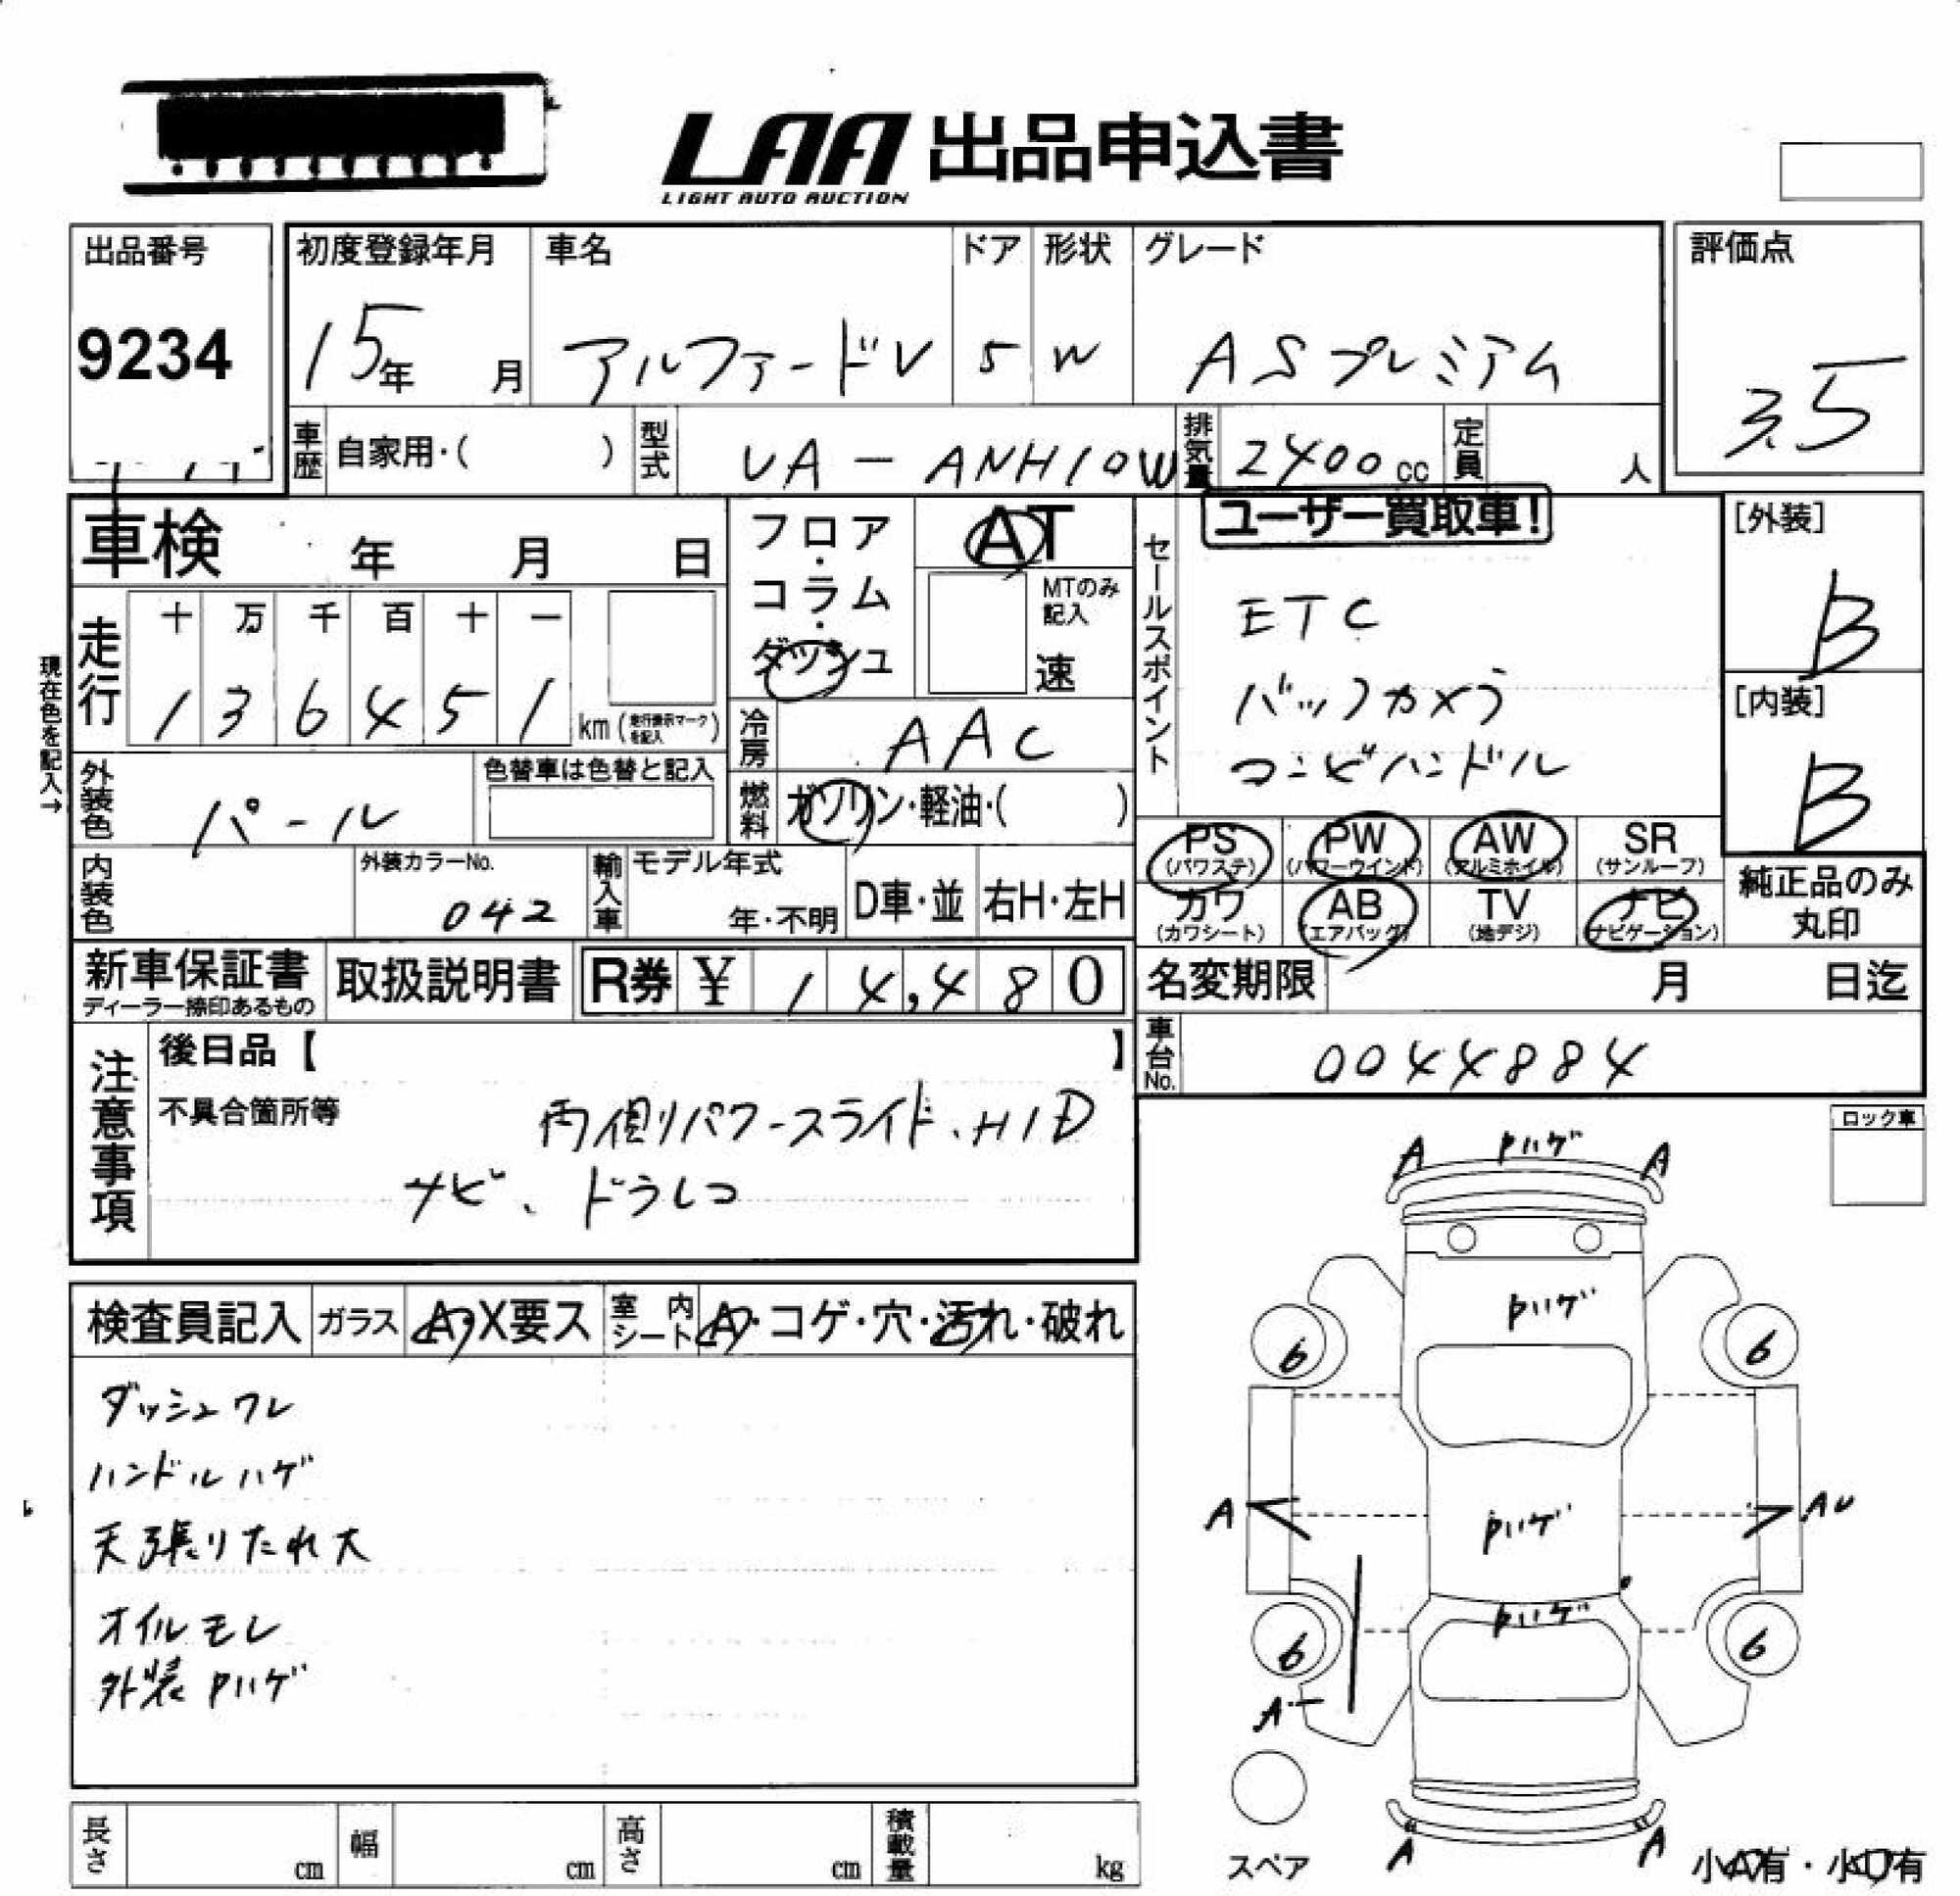 LAA 出品申込書
LIGHT AUTO AUCTION
出品番号
9234
初度登録年月
15年 月
車名
アルファードV
ドア
5
形状
W
グレード
ASプレミアム
評価点
3.5
車歴 自家用・( )
型式 UA-ANH10W
排気量 2400cc
定員 人
車検 年 月 日
フロア・コラム・ダッシュ
AT
MTのみ記入
速
セールスポイント
ユーザー買取車!
ETC
バックカメラ
コンビハンドル
[外装]
B
[内装]
B
現在色を記入→
走行
十 万 千 百 十 一
1 3 6 4 5 1 km(走行表示マークを記入)
冷房 AAC
外装色 パール
色替車は色替と記入
燃料 ガソリン・軽油・( )
PS (パワステ)
PW (パワーウインド)
AW (アルミホイル)
SR (サンルーフ)
カワ (カワシート)
AB (エアバッグ)
TV (地デジ)
ナビ (ナビゲーション)
純正品のみ丸印
内装色
外装カラーNo.
042
輸入車 モデル年式
年・不明
D車・並
右H・左H
新車保証書
ディーラー捺印あるもの
取扱説明書
R券 ¥ 14,480
名変期限 月 日迄
車台No. 0044884
注意事項
後日品【 】
不具合箇所等
両側パワースライド、HID
ナビ、ドラレコ
ロック車
検査員記入
ガラス A・X要ス
室内シート A・コゲ・穴・汚れ・破れ
ダッシュワレ
ハンドルハゲ
天張りたれ大
オイルモレ
外装Pハゲ
A Pハゲ A
Pハゲ
6 6
A Pハゲ AU
Pハゲ
6 6
A
スペア
A A
小A有・小U有
長さ cm
幅 cm
高さ cm
積載量 kg